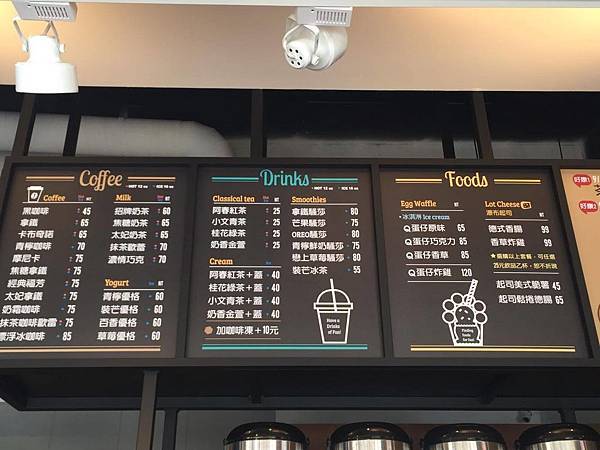 Coffee
HOT 12 oz ICE 16 oz
Coffee NT
黑咖啡 45
拿鐵 65
卡布奇諾 65
青檸咖啡 70
摩尼卡 75
焦糖拿鐵 75
經典福芳 75
太妃拿鐵 75
奶霜咖啡 75
抹茶咖啡歐蕾 75
漂浮冰咖啡 85
Milk NT
招牌奶茶 60
焦糖奶茶 65
太妃奶茶 65
抹茶歐蕾 70
濃情巧克 70
Yogurt NT
青檸優格 60
裝芒優格 60
百香優格 60
草莓優格 60
Drinks
HOT 12 oz ICE 16 oz
Classical tea NT
阿春紅茶 25
小文青茶 25
桂花綠茶 25
奶香金萱 25
Cream NT
阿春紅茶+蓋 40
桂花綠茶+蓋 40
小文青茶+蓋 40
奶香金萱+蓋 40
加咖啡凍+10元
Smoothies NT
拿鐵騷莎 80
芒果騷莎 75
OREO騷莎 80
青檸鮮奶騷莎 75
戀上草莓騷莎 80
裝芒冰茶 55
Have a
Drinks
of Fun!
Foods
Egg Waffle NT
冰淇淋 Ice cream
Q蛋仔原味 65
Q蛋仔巧克力 85
Q蛋仔香草 85
Q蛋仔炸雞 120
Lot Cheese NT
瀑布起司
德式香腸 99
香草炸雞 99
★選購以上套餐,可任選
25元飲品乙杯,恕不折現
起司美式脆薯 45
起司鬆捲德腸 65
Finding
foods
for fun!
好康!
好康!